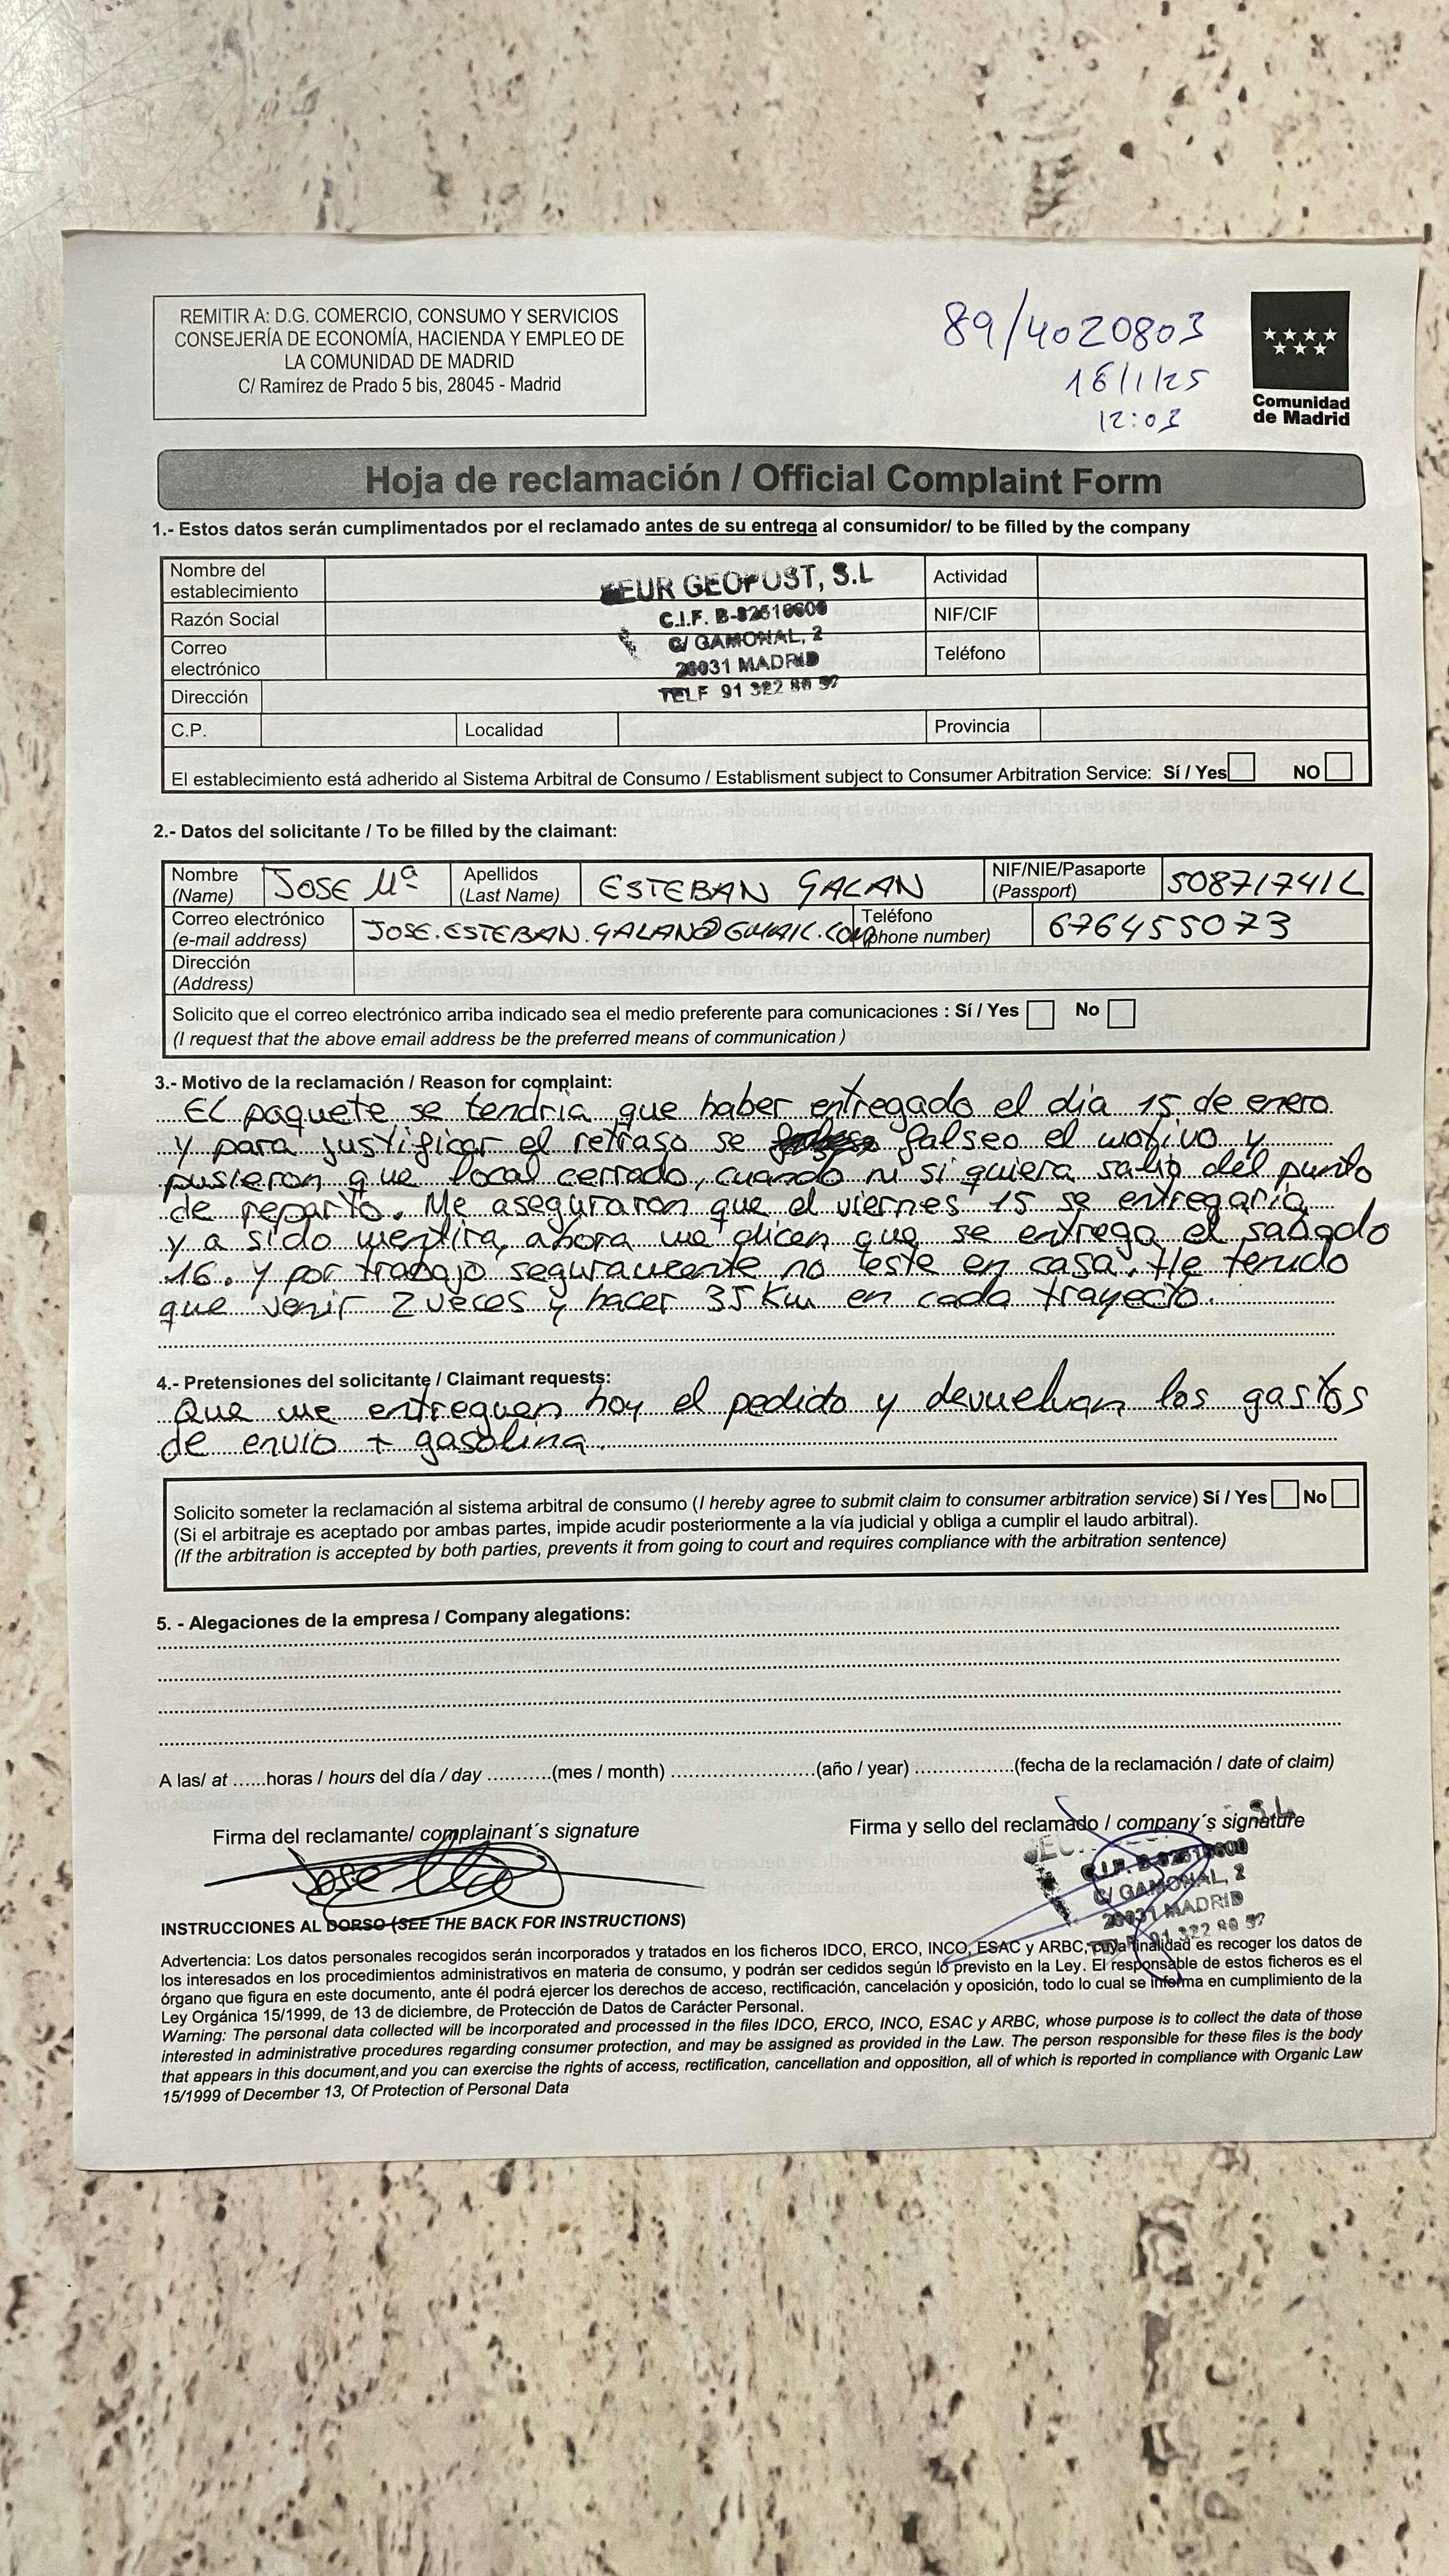 REMITIR A: D.G. COMERCIO, CONSUMO Y SERVICIOS
CONSEJERÍA DE ECONOMÍA, HACIENDA Y EMPLEO DE
LA COMUNIDAD DE MADRID
C/ Ramírez de Prado 5 bis, 28045 - Madrid
89/4020803
16/1/25
12:03
Comunidad
de Madrid
Hoja de reclamación / Official Complaint Form
1.- Estos datos serán cumplimentados por el reclamado antes de su entrega al consumidor/ to be filled by the company
Nombre del
establecimiento
Actividad
Razón Social
NIF/CIF
Correo
electrónico
Teléfono
Dirección
C.P.
Localidad
Provincia
SEUR GEOPOST, S.L
C.I.F. B-82516600
C/ GAMONAL, 2
28031 MADRID
TELF 91 322 80
El establecimiento está adherido al Sistema Arbitral de Consumo / Establisment subject to Consumer Arbitration Service: Sí / Yes NO
2.- Datos del solicitante / To be filled by the claimant:
Nombre
(Name)
JOSE Mª
Apellidos
(Last Name)
ESTEBAN GALAN
NIF/NIE/Pasaporte
(Passport)
50871741L
Correo electrónico
(e-mail address)
JOSE.ESTEBAN.GALAN@GMAIL.COM
Teléfono
(phone number)
676455073
Dirección
(Address)
Solicito que el correo electrónico arriba indicado sea el medio preferente para comunicaciones : Sí / Yes No
(I request that the above email address be the preferred means of communication )
3.- Motivo de la reclamación / Reason for complaint:
El paquete se tendria que haber entregado el dia 15 de enero
y para justificar el retraso se falseo el motivo y
pusieron que local cerrado, cuando ni si quiera salio del punto
de reparto. Me aseguraron que el viernes 15 se entregaria
y a sido mentira, ahora me dicen que se entrega el sabado
16. y por trabajo seguramente no este en casa. He tenido
que venir 2 veces y hacer 35 Km en cada trayecto.
4.- Pretensiones del solicitante / Claimant requests:
Que me entreguen hoy el pedido y devuelvan los gastos
de envio + gasolina.
Solicito someter la reclamación al sistema arbitral de consumo (I hereby agree to submit claim to consumer arbitration service) Sí / Yes No
(Si el arbitraje es aceptado por ambas partes, impide acudir posteriormente a la vía judicial y obliga a cumplir el laudo arbitral).
(If the arbitration is accepted by both parties, prevents it from going to court and requires compliance with the arbitration sentence)
5. - Alegaciones de la empresa / Company alegations:
A las/ at ......horas / hours del día / day ..........(mes / month) ........................(año / year) .................(fecha de la reclamación / date of claim)
Firma del reclamante/ complainant´s signature
Firma y sello del reclamado / company´s signature
Jose
S.L.
C.I.F. B-82516600
C/ GAMONAL, 2
28031 MADRID
TELF 91 322 80
INSTRUCCIONES AL DORSO (SEE THE BACK FOR INSTRUCTIONS)
Advertencia: Los datos personales recogidos serán incorporados y tratados en los ficheros IDCO, ERCO, INCO, ESAC y ARBC, cuya finalidad es recoger los datos de
los interesados en los procedimientos administrativos en materia de consumo, y podrán ser cedidos según lo previsto en la Ley. El responsable de estos ficheros es el
órgano que figura en este documento, ante él podrá ejercer los derechos de acceso, rectificación, cancelación y oposición, todo lo cual se informa en cumplimiento de la
Ley Orgánica 15/1999, de 13 de diciembre, de Protección de Datos de Carácter Personal.
Warning: The personal data collected will be incorporated and processed in the files IDCO, ERCO, INCO, ESAC y ARBC, whose purpose is to collect the data of those
interested in administrative procedures regarding consumer protection, and may be assigned as provided in the Law. The person responsible for these files is the body
that appears in this document,and you can exercise the rights of access, rectification, cancellation and opposition, all of which is reported in compliance with Organic Law
15/1999 of December 13, Of Protection of Personal Data